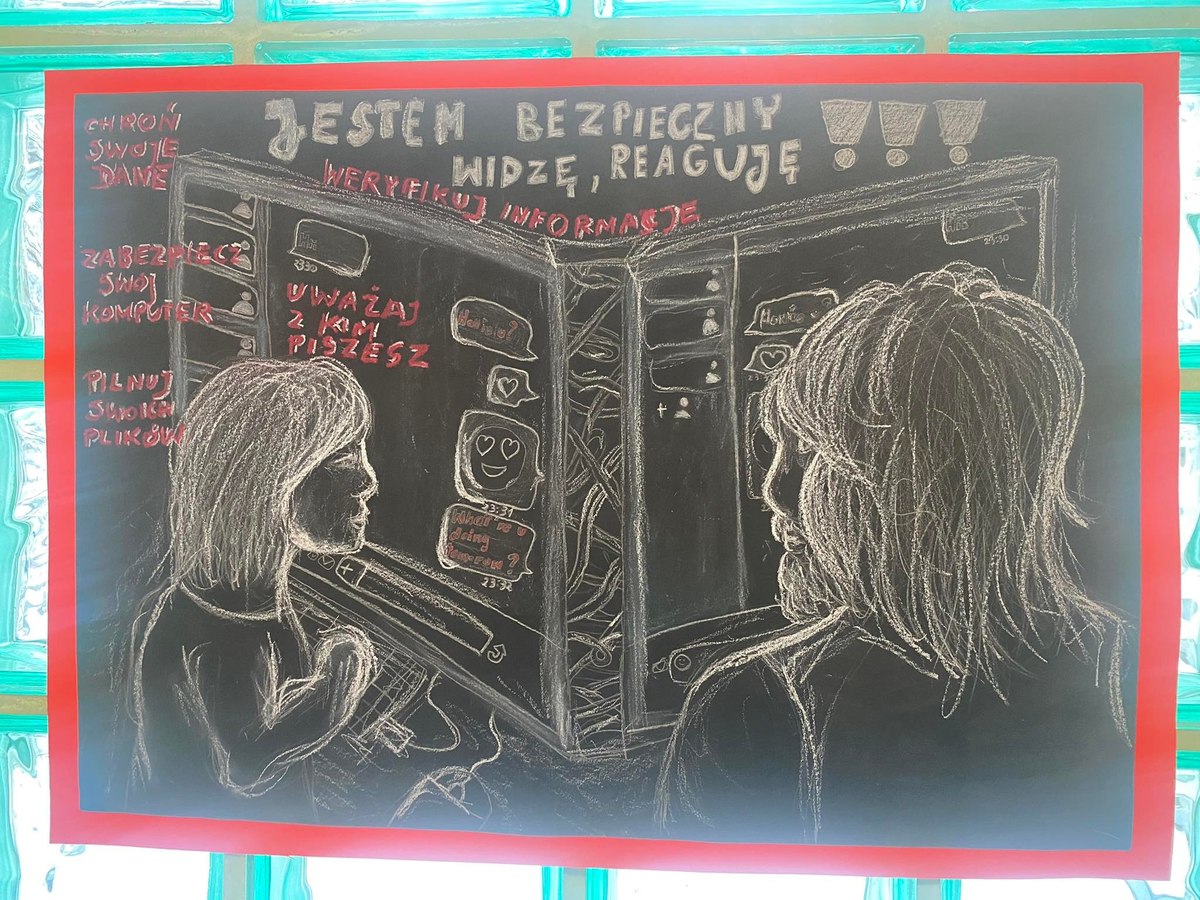 JESTEM BEZPIECZNY !!!
WIDZĘ, REAGUJĘ
WERYFIKUJ INFORMACJE
CHROŃ
SWOJE
DANE
ZABEZPIECZ
SWÓJ
KOMPUTER
PILNUJ
SWOICH
PLIKÓW
23:30
UWAŻAJ
Z KIM
PISZESZ
23:31
What're u
doing
?
23:32
23:30